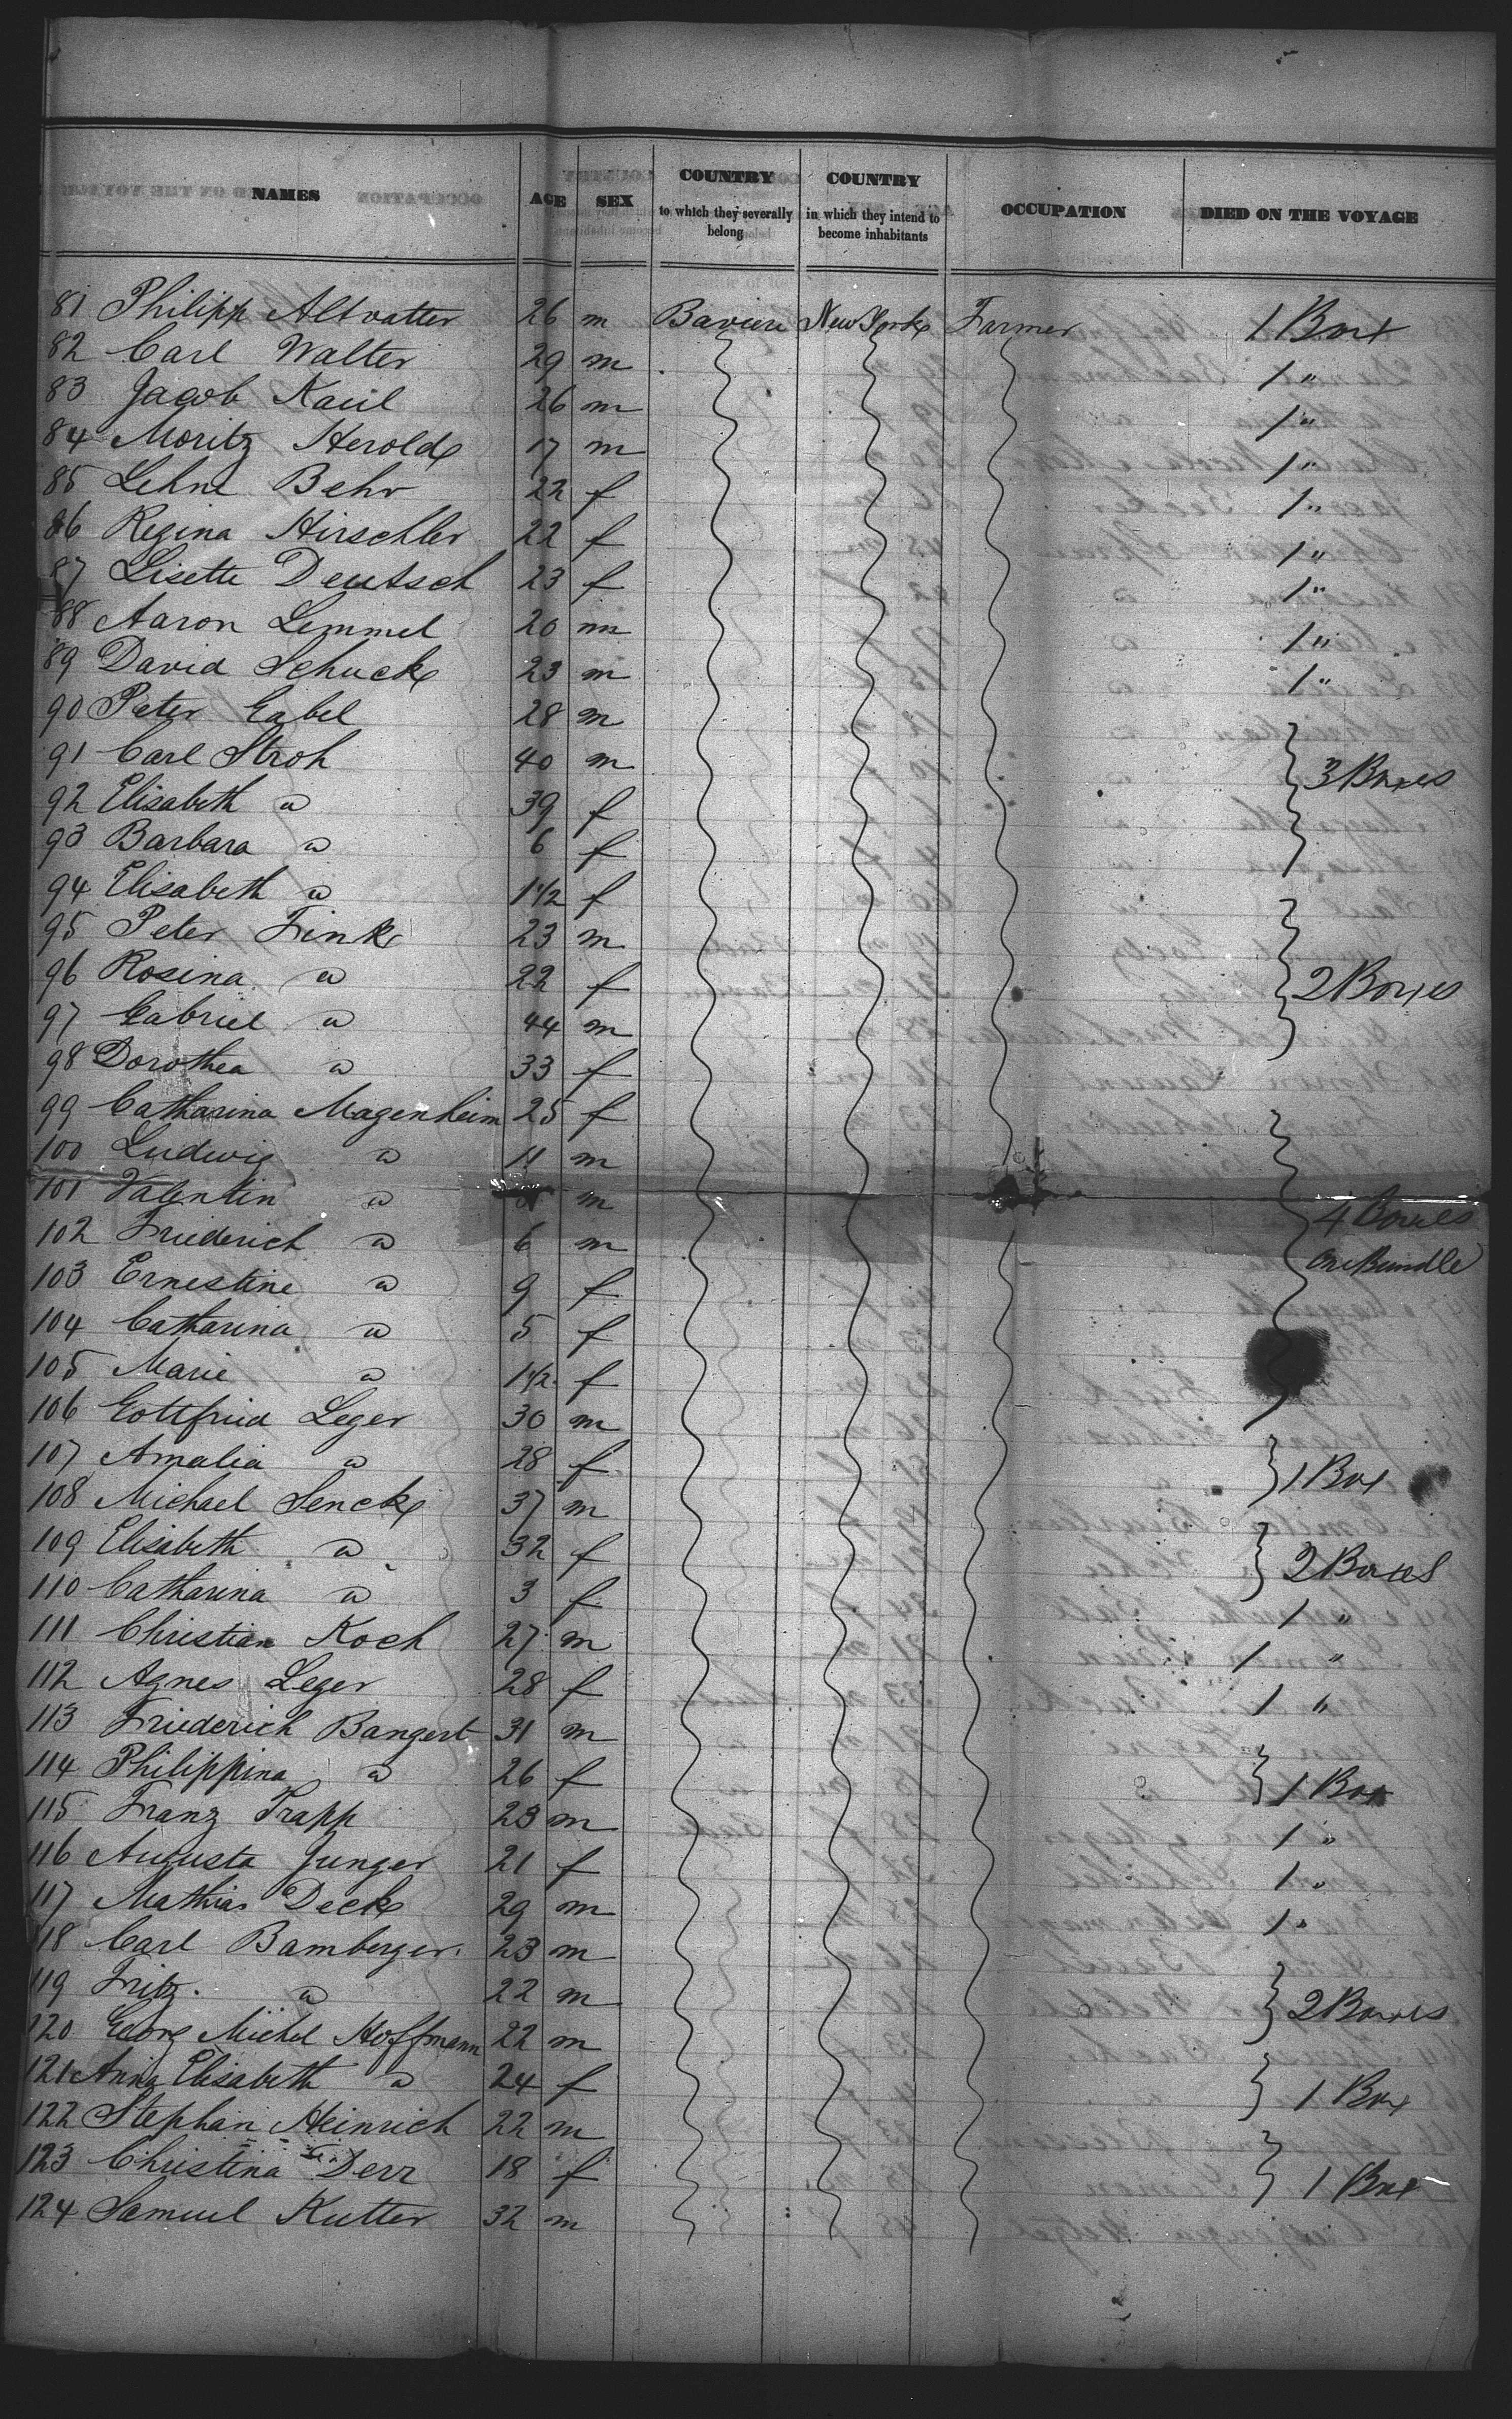 NAMES AGE SEX COUNTRY to which they severally belong COUNTRY in which they intend to become inhabitants OCCUPATION DIED ON THE VOYAGE
81 Philipp Altvatter 26 m Baviere New York Farmer 1 Box
82 Carl Walter 29 m 1 "
83 Jacob Kaul 26 m 1 "
84 Moritz Herold 17 m 1 "
85 Lehne Behr 22 f 1 "
86 Regina Hirschler 22 f 1 "
87 Lisette Deutsch 23 f 1 "
88 Aaron Lemmel 20 m 1 "
89 David Schuck 23 m 1 "
90 Peter Gabel 28 m
91 Carl Stroh 40 m 3 Boxes
92 Elisabeth a 39 f
93 Barbara a 6 f
94 Elisabeth a 1 1/2 f
95 Peter Fink 23 m
96 Rosina a 22 f 2 Boxes
97 Gabriel a 44 m
98 Dorothea a 33 f
99 Catharina Magenheim 25 f
100 Ludwig a 11 m
101 Valentin a m 4 Boxes
102 Friederich a 6 m one Bundle
103 Ernestine a 9 f
104 Catharina a 5 f
105 Marie a 1 1/2 f
106 Gottfried Leger 30 m
107 Amalia a 28 f 1 Box
108 Michael Senck 37 m
109 Elisabeth a 32 f 2 Boxes
110 Catharina a 3 f 1 "
111 Christian Koch 27 m 1 "
112 Agnes Leger 28 f 1 "
113 Friederich Bangert 31 m
114 Philippina a 26 f 1 Box
115 Franz Trapp 23 m 1 "
116 Augusta Junger 21 f 1 "
117 Mathias Deck 29 m 1 "
118 Carl Bamberger 23 m
119 Fritz a 22 m 2 Boxes
120 Georg Michel Hoffmann 22 m
121 Anna Elisabeth a 24 f 1 Box
122 Stephan Heinrich 22 m
123 Christina Derr 18 f 1 Box
124 Samuel Kutter 32 m